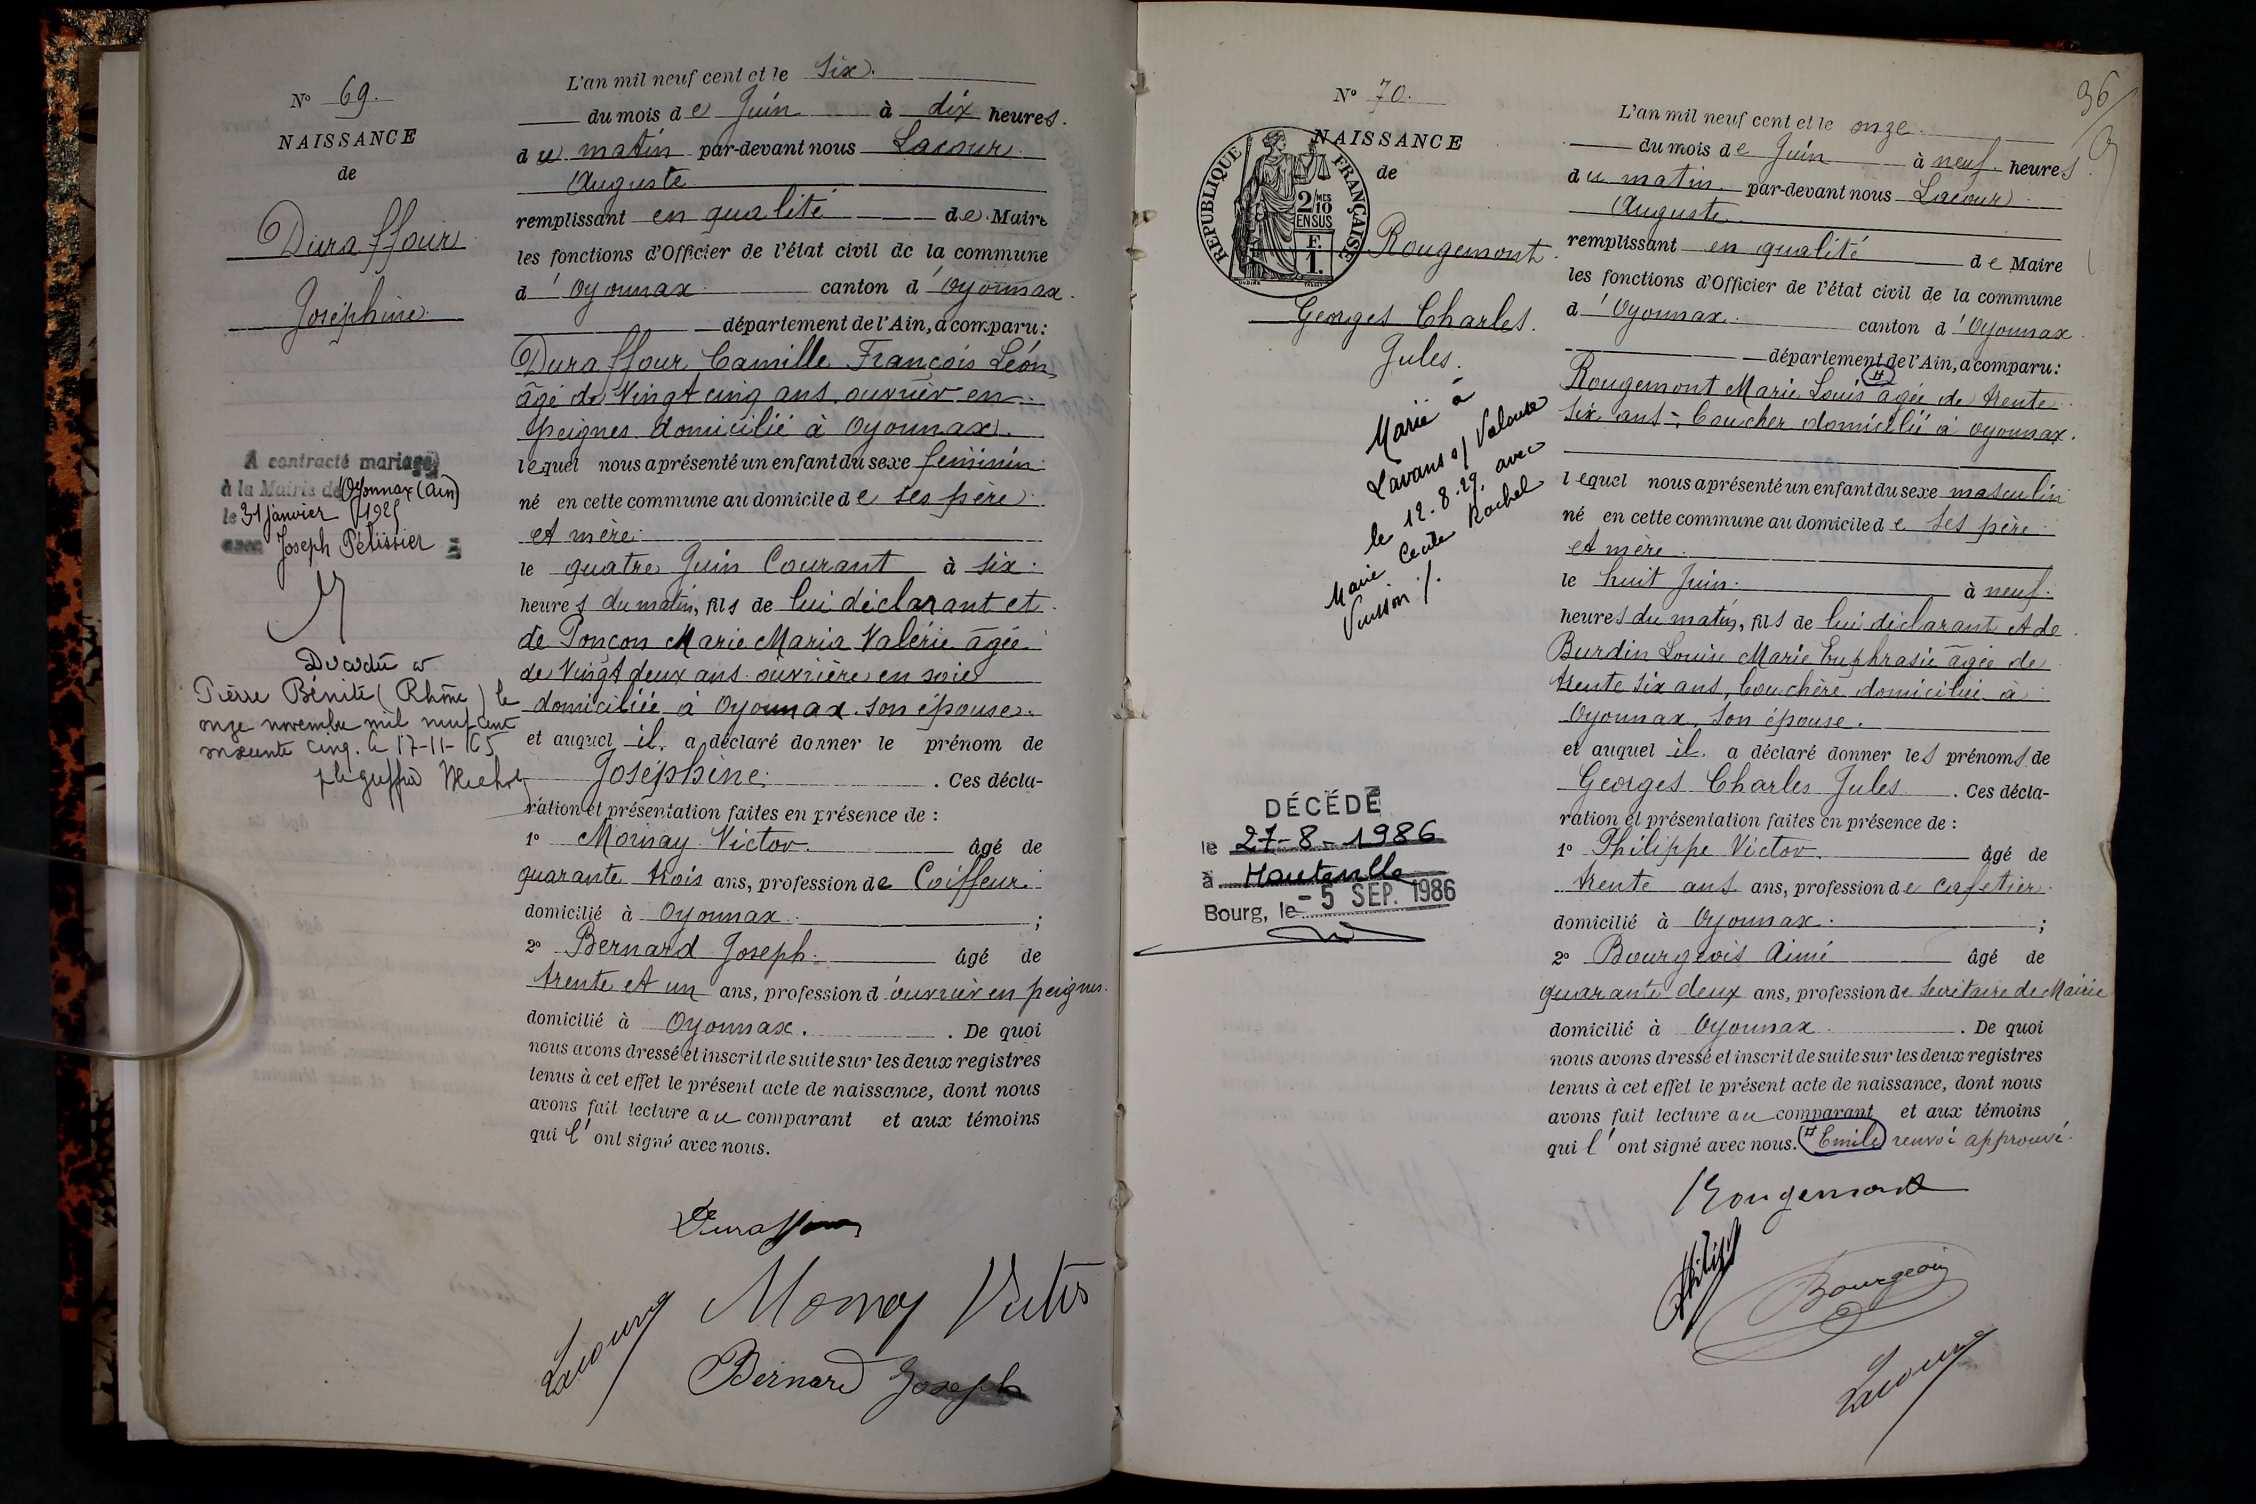 N° 69.
NAISSANCE
de
Duraffour
Joséphine
A contracté mariage
à la Mairie de Oyonnax (Ain)
le 31 janvier 1925
avec Joseph Pélissier
Décédée à
Pierre Bénite (Rhône) le
onze novembre mil neuf cent
soixante cinq. Le 17-11-65
L'an mil neuf cent et le six.
du mois de Juin à dix heures.
du matin par-devant nous Lacour
Auguste
remplissant en qualité de Maire
les fonctions d'Officier de l'état civil de la commune
d'Oyonnax canton d'Oyonnax.
département de l'Ain, a comparu:
Duraffour Camille François Léon
âgé de Vingt cinq ans ouvrier en
peignes domicilié à Oyonnax.
lequel nous a présenté un enfant du sexe féminin
né en cette commune au domicile de ses père
et mère
le quatre Juin Courant à six
heures du matin, fils de lui déclarant et
de Ponçon Marie Maria Valérie âgée
de Vingt deux ans ouvrière en soie
domiciliée à Oyonnax son épouse.
et auquel il a déclaré donner le prénom de
Joséphine. Ces décla-
ration et présentation faites en présence de :
1° Mornay Victor. âgé de
quarante trois ans, profession de Coiffeur
domicilié à Oyonnax ;
2° Bernard Joseph. âgé de
trente et un ans, profession d'ouvrier en peignes.
domicilié à Oyonnax. . De quoi
nous avons dressé et inscrit de suite sur les deux registres
tenus à cet effet le présent acte de naissance, dont nous
avons fait lecture au comparant et aux témoins
qui l'ont signé avec nous.
Duraffour
Mornay Victor
Lacour
Bernard Joseph
36
N° 70.
NAISSANCE
de
REPUBLIQUE FRANÇAISE
2/MES
10
EN SUS
F.
1.
Rougemont.
Georges Charles.
Jules.
Marié à
Lavans s/ Valouse
le 12.8.29. avec
Marie Cécile Rachel
Vuisson /.
DÉCÉDÉ
le 27-8-1986
à Hauteville
Bourg, le - 5 SEP. 1986
L'an mil neuf cent et le onze
du mois de Juin à neuf heures.
du matin par-devant nous Lacour
Auguste
remplissant en qualité de Maire
les fonctions d'Officier de l'état civil de la commune
d'Oyonnax canton d'Oyonnax
département de l'Ain, a comparu:
Rougemont Marie Louis # âgé de trente
six ans, boucher domicilié à Oyonnax.
lequel nous a présenté un enfant du sexe masculin
né en cette commune au domicile de ses père
et mère.
le huit Juin. à neuf.
heures du matin, fils de lui déclarant et de
Burdin Louise Marie Euphrasie âgée de
trente six ans, bouchère domiciliée à
Oyonnax, son épouse.
et auquel il a déclaré donner les prénoms de
Georges Charles Jules. Ces décla-
ration et présentation faites en présence de :
1° Philippe Victor. âgé de
trente ans ans, profession de cafetier.
domicilié à Oyonnax. ;
2° Bourgeois Aimé âgé de
quarante deux ans, profession de Secrétaire de Mairie
domicilié à Oyonnax . De quoi
nous avons dressé et inscrit de suite sur les deux registres
tenus à cet effet le présent acte de naissance, dont nous
avons fait lecture au comparant et aux témoins
qui l'ont signé avec nous. # Emile renvoi approuvé.
Rougemont
Philippe
Bourgeois
Lacour